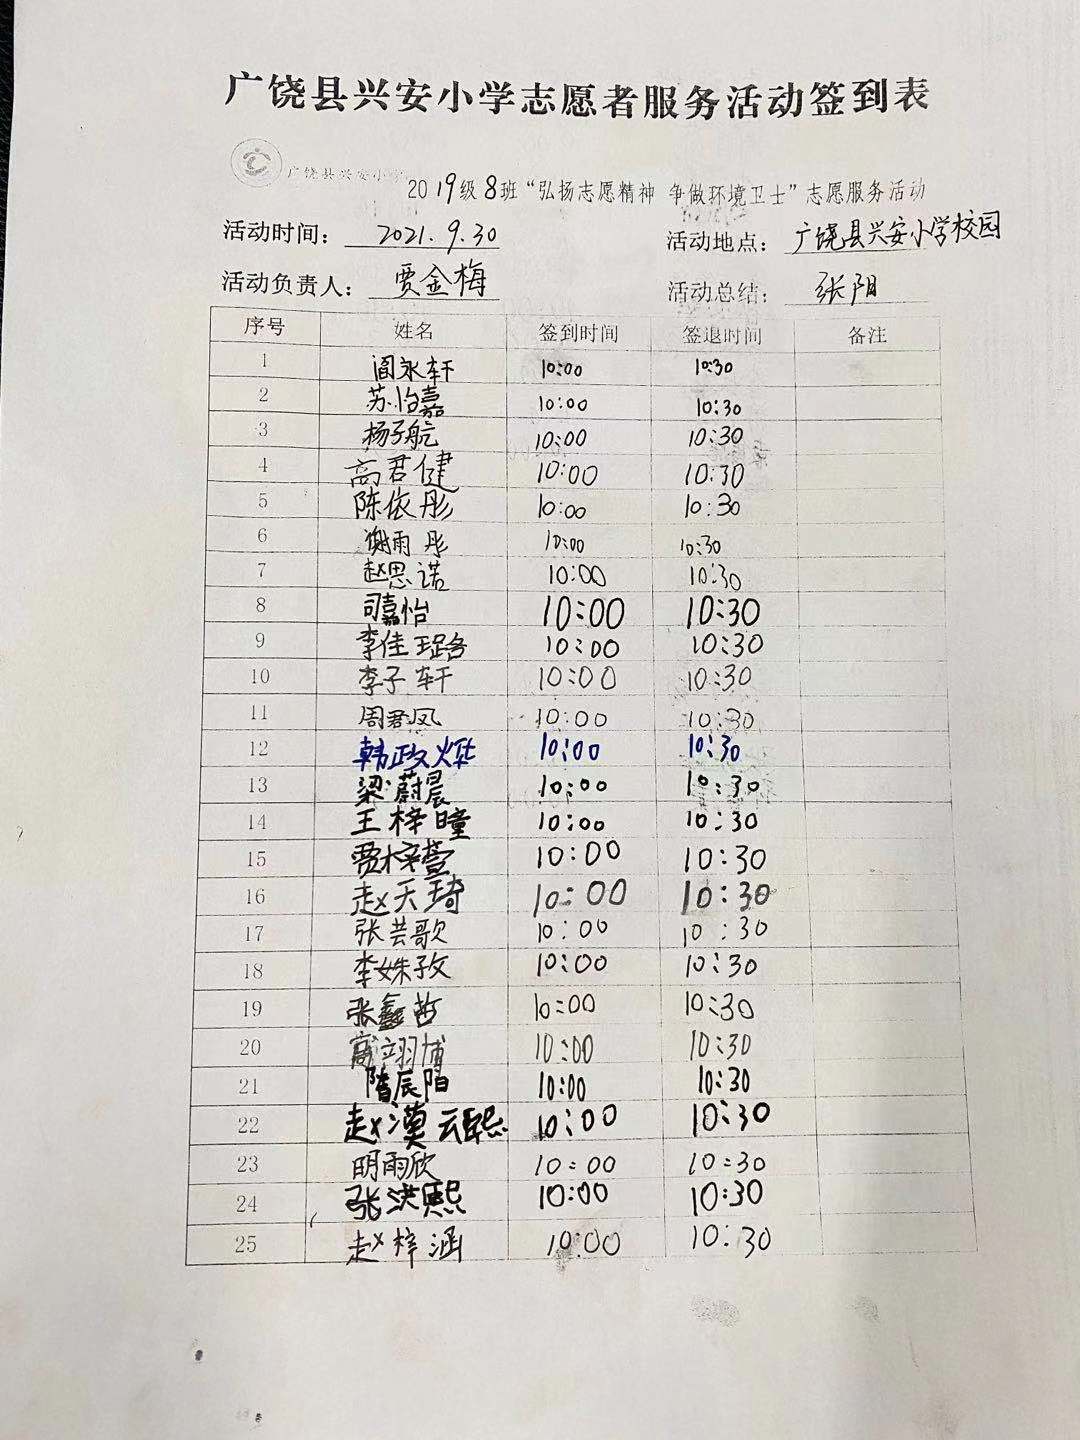 广饶县兴安小学志愿者服务活动签到表
广饶县兴安小学
2019级8班“弘扬志愿精神 争做环境卫士”志愿服务活动
活动时间： 2021.9.30 活动地点： 广饶县兴安小学校园
活动负责人： 贾金梅 活动总结： 张阳
序号 姓名 签到时间 签退时间 备注
1 阎永轩 10:00 10:30
2 苏怡嘉 10:00 10:30
3 杨子航 10:00 10:30
4 高君健 10:00 10:30
5 陈依彤 10:00 10:30
6 谢雨彤 10:00 10:30
7 赵思诺 10:00 10:30
8 司嘉怡 10:00 10:30
9 李佳璐 10:00 10:30
10 李子轩 10:00 10:30
11 周君凤 10:00 10:30
12 韩政烨 10:00 10:30
13 梁蔚晨 10:00 10:30
14 王梓瞳 10:00 10:30
15 贾梓萱 10:00 10:30
16 赵天琦 10:00 10:30
17 张芸歌 10:00 10:30
18 李姝孜 10:00 10:30
19 张鑫哲 10:00 10:30
20 翊博 10:00 10:30
21 隋辰阳 10:00 10:30
22 赵漠云熙 10:00 10:30
23 明雨欣 10:00 10:30
24 张洪熙 10:00 10:30
25 赵梓涵 10:00 10:30